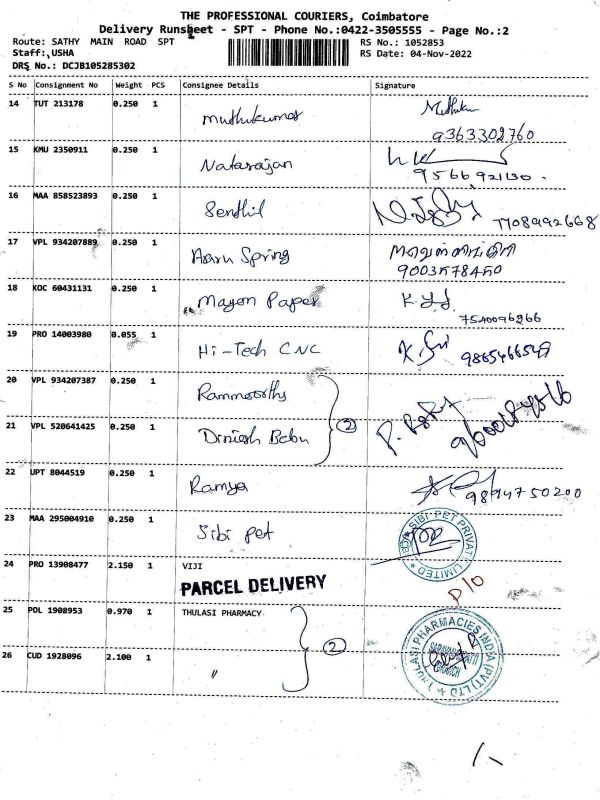 THE PROFESSIONAL COURIERS, Coimbatore
Delivery Runsheet - SPT - Phone No.:0422-3505555 - Page No.:2
Route: SATHY MAIN ROAD SPT RS No.: 1052853
Staff: USHA RS Date: 04-Nov-2022
DRS No.: DCJB105285302
S No Consignment No Weight PCS Consignee Details Signature
14 TUT 213178 0.250 1 Muthukumar
9363302760
15 KMU 2350911 0.250 1 Natarajan
9566921130.
16 MAA 858523893 0.250 1 Senthil
7708992668
17 VPL 934207889 0.250 1 Aaru Spring
9003578450
18 KOC 60431131 0.250 1 Mayon Paper
7540096266
19 PRO 14003980 0.055 1 Hi-Tech CNC K. Sri 9865466549
20 VPL 934207387 0.250 1 Rammoorthy
(2)
21 VPL 520641425 0.250 1 Dinesh Babu
22 UPT 8044519 0.250 1 Ramya
9894750200
23 MAA 295004910 0.250 1 Sibi pet
SIBI PET PRIVATE LIMITED
24 PRO 13908477 2.150 1 VIJI
PARCEL DELIVERY
P/O
25 POL 1908953 0.970 1 THULASI PHARMACY
(2)
THULASI PHARMACIES INDIA (PVT) LTD
BRANCH
26 CUD 1928096 2.100 1 "